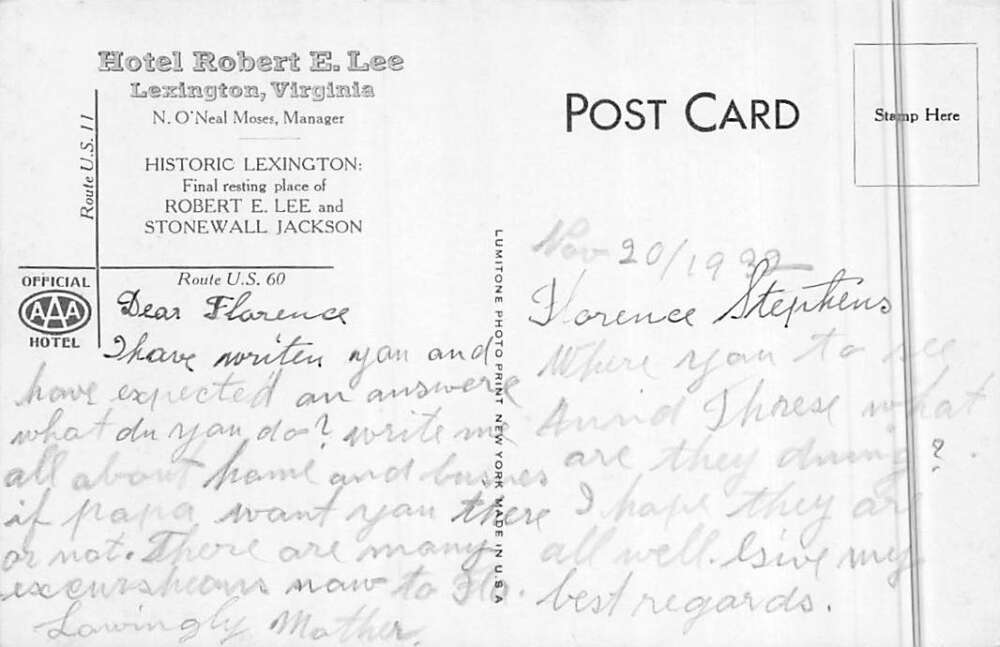 Hotel Robert E. Lee
Lexington, Virginia
N. O'Neal Moses, Manager
HISTORIC LEXINGTON:
Final resting place of
ROBERT E. LEE and
STONEWALL JACKSON
Route U.S. 11
Route U.S. 60
OFFICIAL
AAA
HOTEL
Dear Florence
I have writen you and
have expected an answere
what du you do? write me
all about home and busines
if papa want you there
or not. There are many
excursheans now to Flo.
Lowingly Mother.
LUMITONE PHOTOPRINT NEW YORK MADE IN U.S.A
POST CARD
Stamp Here
Nov 20/1932
Florence Stephens
Where you to see
and Therese what
are they duing?
I hope they are
all well. Give my
best regards.